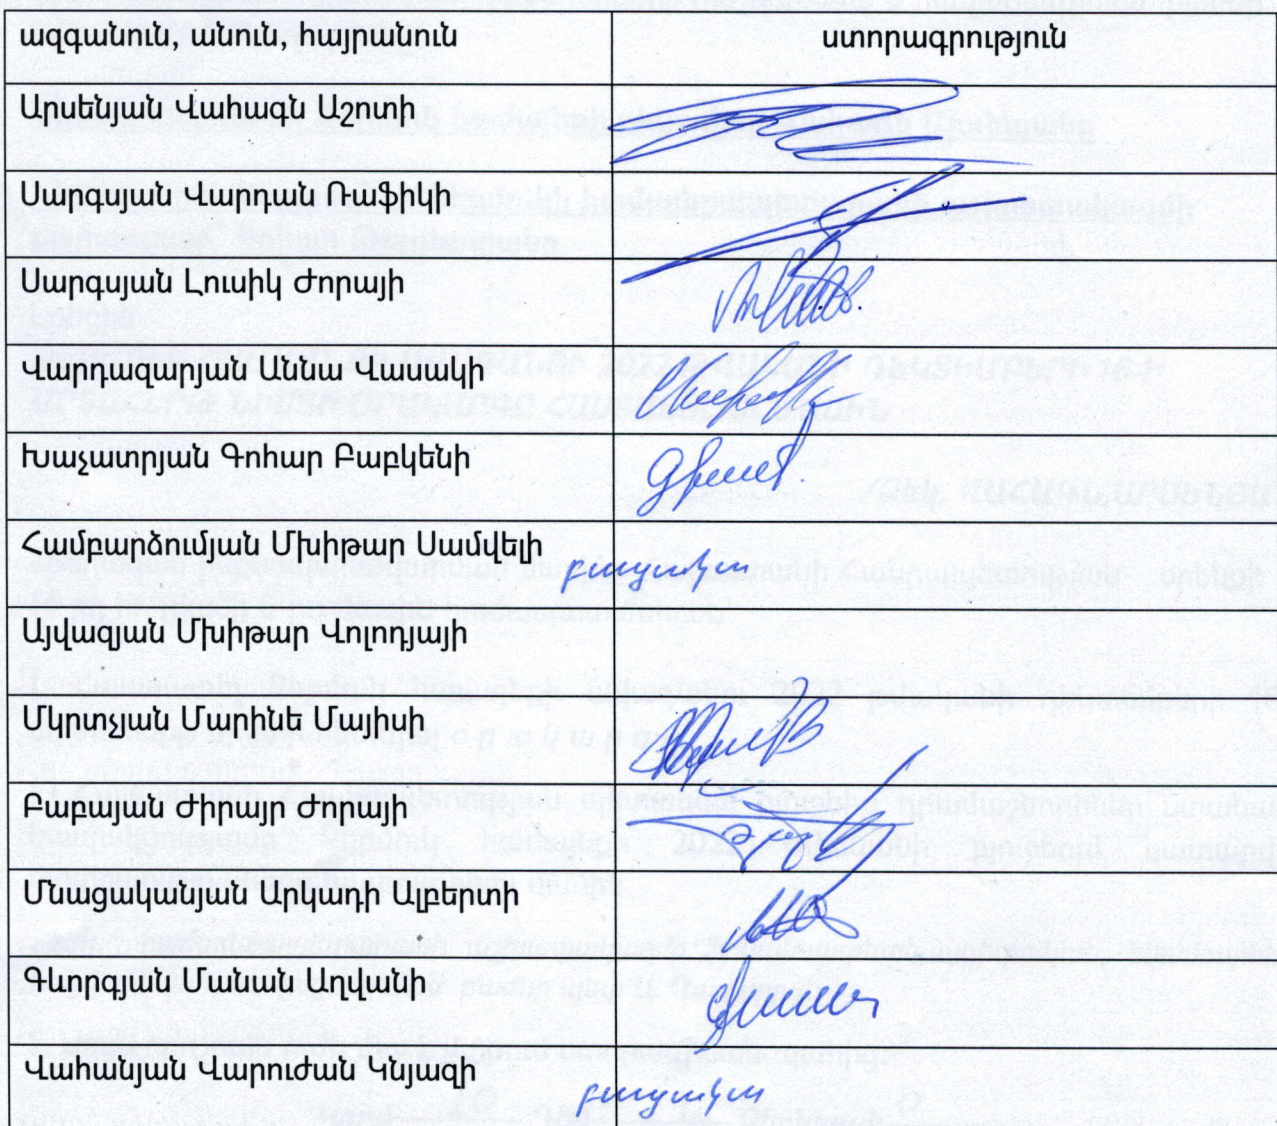 ազգանուն, անուն, հայրանուն ստորագրություն
Արսենյան Վահագն Աշոտի
Սարգսյան Վարդան Ռաֆիկի
Սարգսյան Լուսիկ Ժորայի
Վարդազարյան Աննա Վասակի
Խաչատրյան Գոհար Բաբկենի
Համբարձումյան Մխիթար Սամվելի բացակա
Այվազյան Մխիթար Վոլոդյայի
Մկրտչյան Մարինե Մայիսի
Բաբայան Ժիրայր Ժորայի
Մնացականյան Արկադի Ալբերտի
Գևորգյան Մանան Աղվանի
Վահանյան Վարուժան Կնյազի բացակա